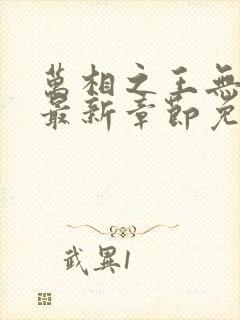 萬相之王無
最新章節免
武異1